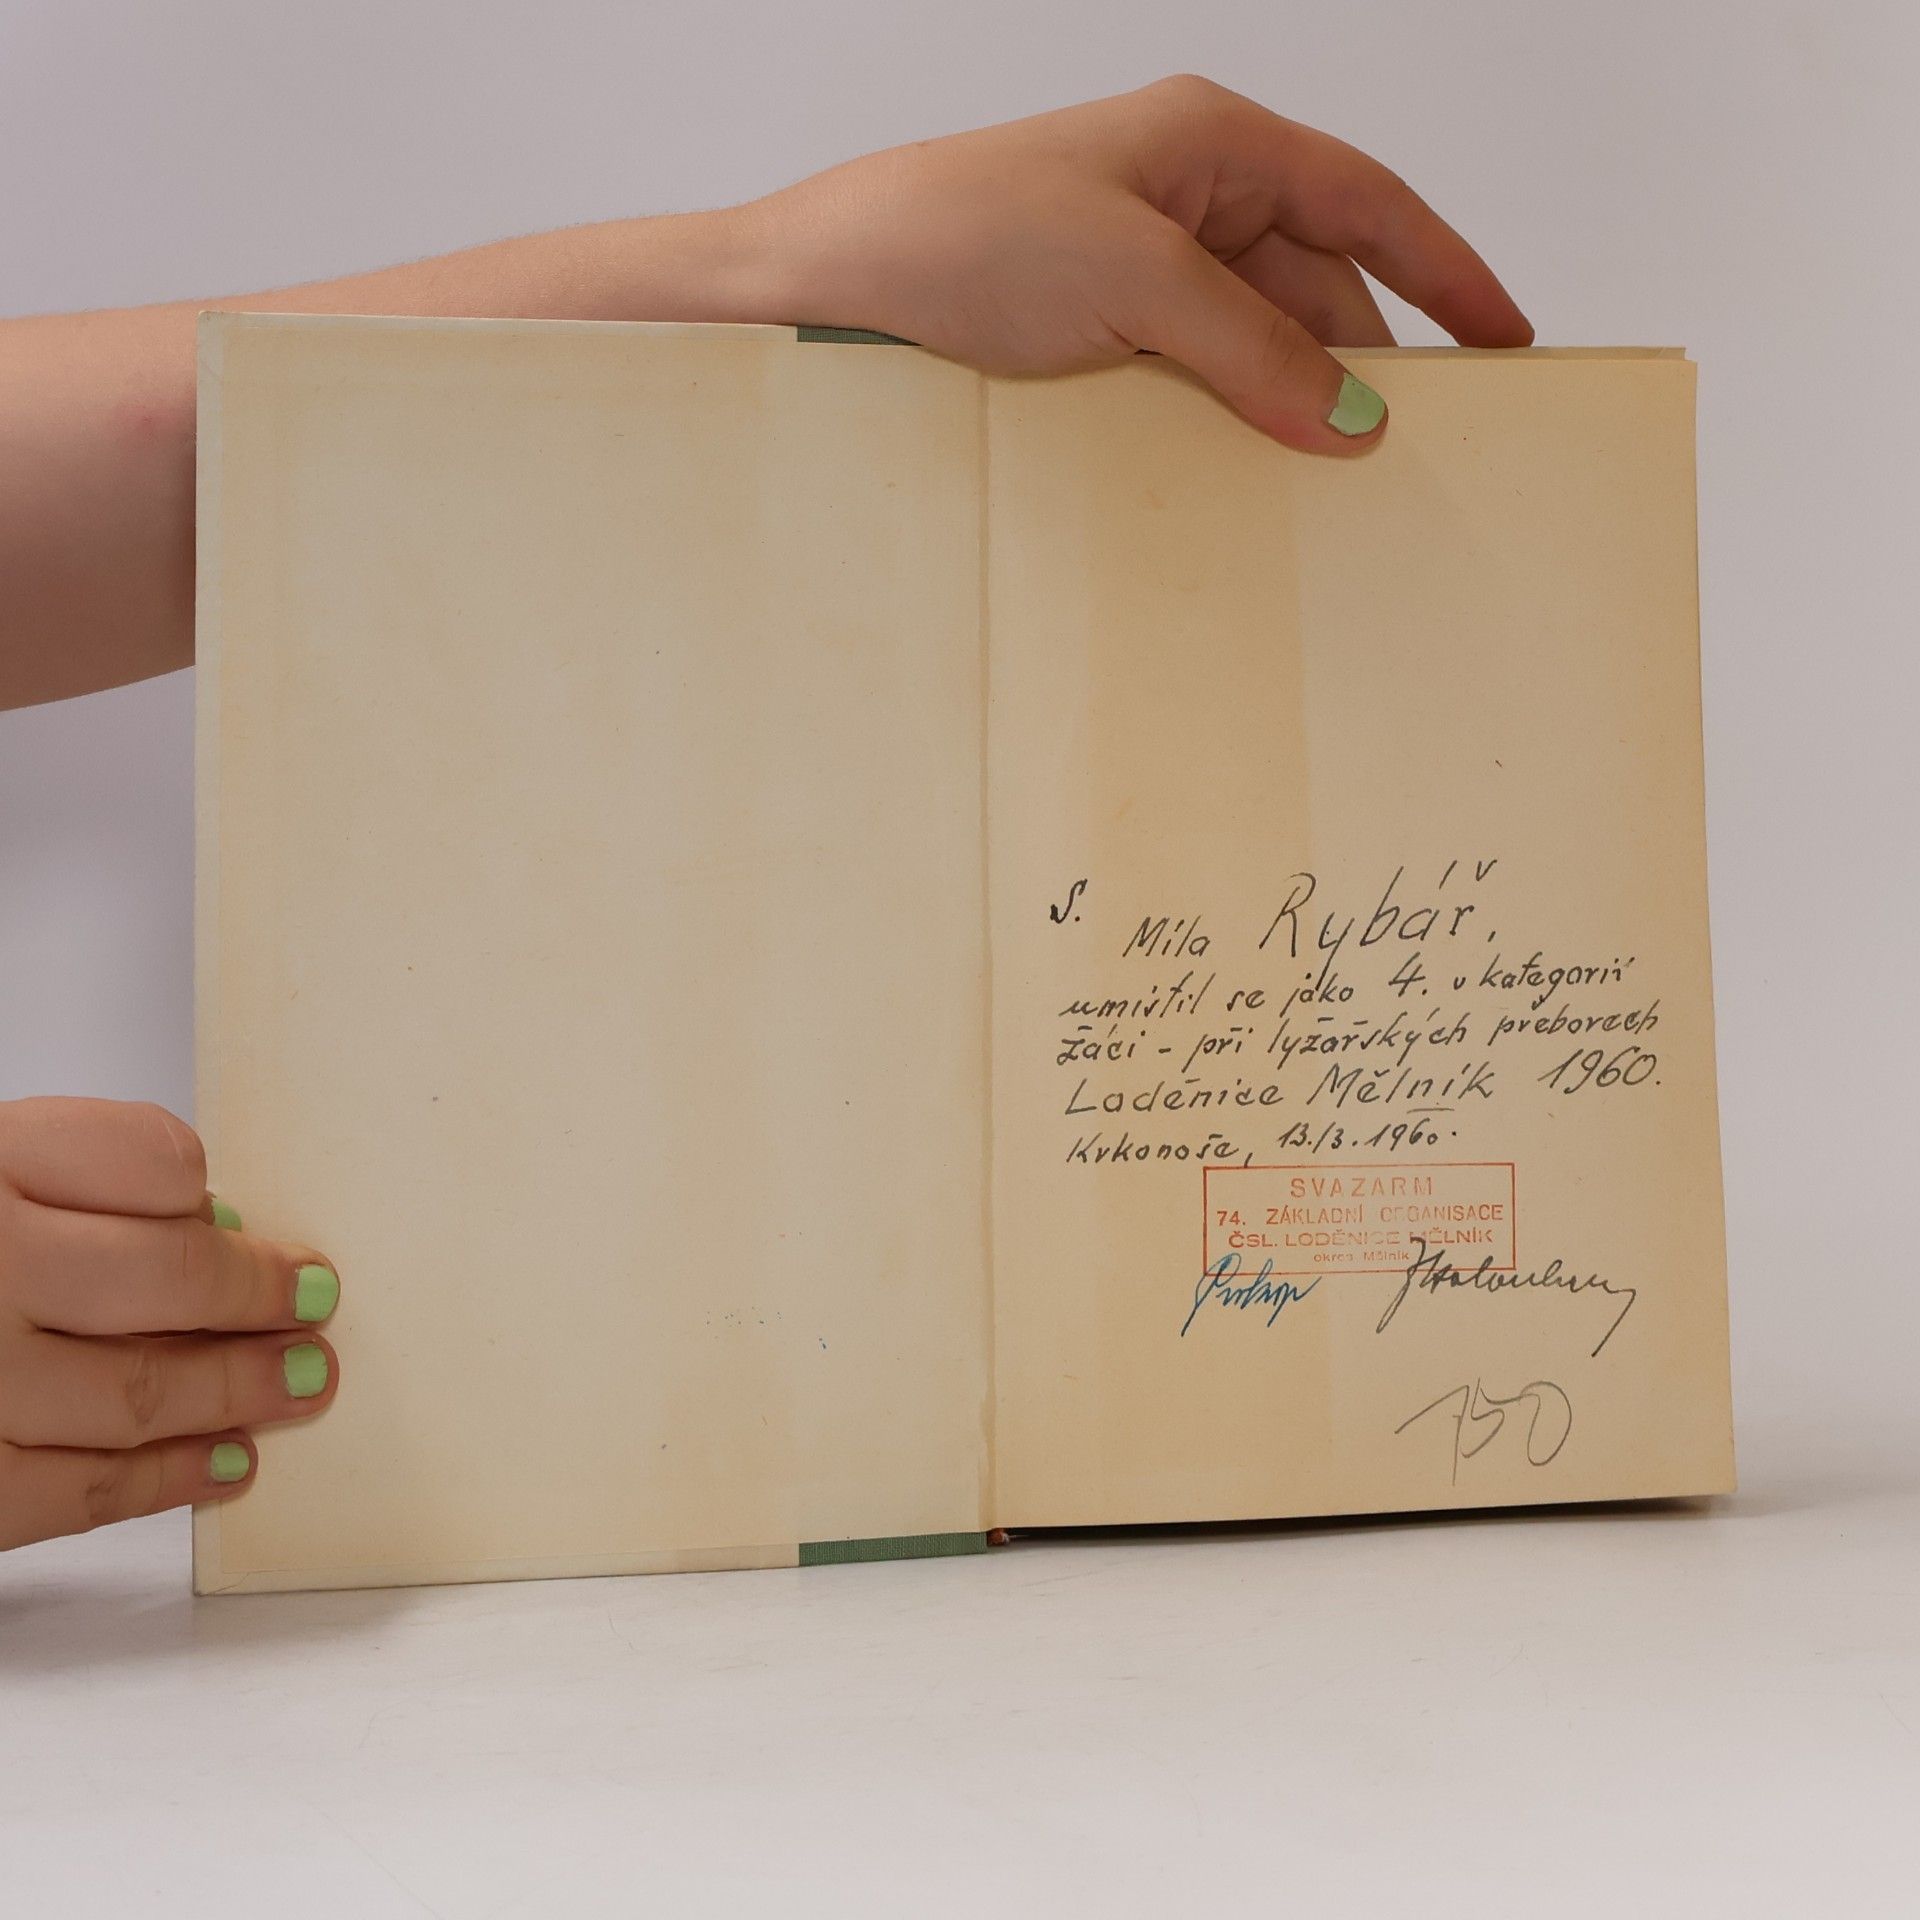 S.
Míla Rybář,
umístil se jako 4. v kategorii
žáci - při lyžařských přeborech
Loděnice Mělník 1960.
Krkonoše, 13./3. 1960.
SVAZARM
74. ZÁKLADNÍ ORGANISACE
ČSL. LODĚNICE MĚLNÍK
okres Mělník
Prokop
150